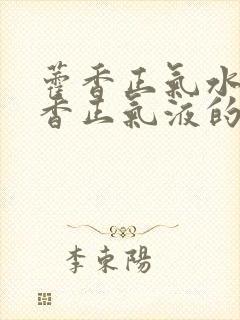 藿香正氣水
香正氣液的
李東陽